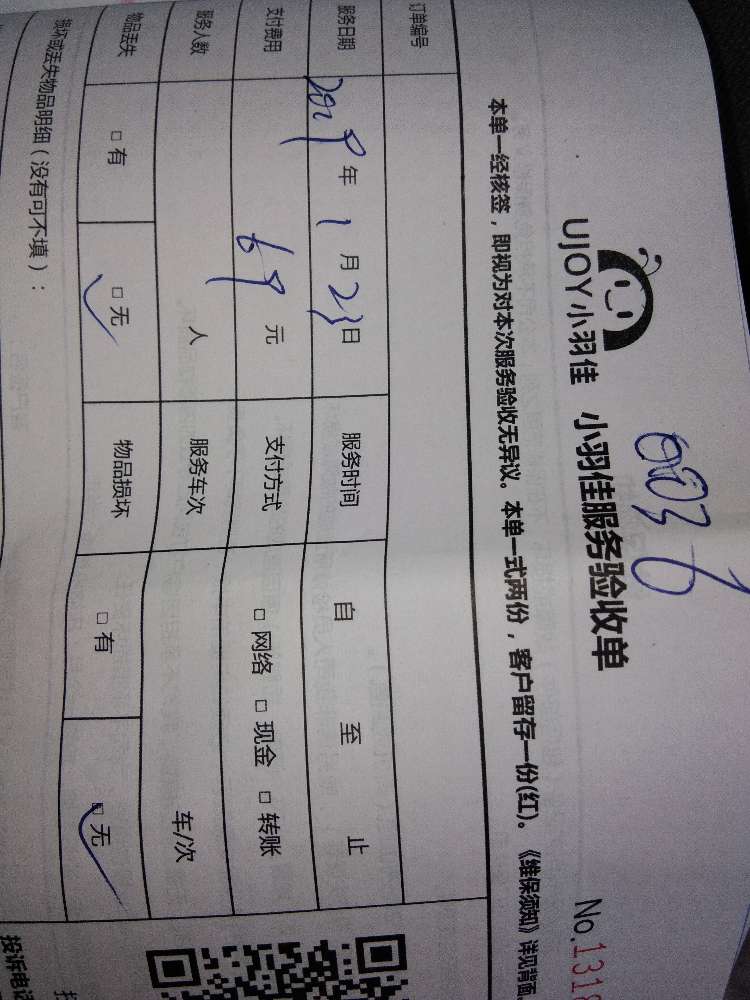 UJOY小羽佳 小羽佳服务验收单
No.1318
本单一经核签，即视为对本次服务验收无异议。本单一式两份，客户留存一份(红)。《维保须知》详见背面。
订单编号
服务日期 2029年1月23日 服务时间 自 至 止
支付费用 69元 支付方式 □ 网络 □ 现金 □ 转账
服务人数 人 服务车次 车/次
物品丢失 □ 有 □ 无 物品损坏 □ 有 □ 无
损坏或丢失物品明细（没有可不填）：
投诉电话